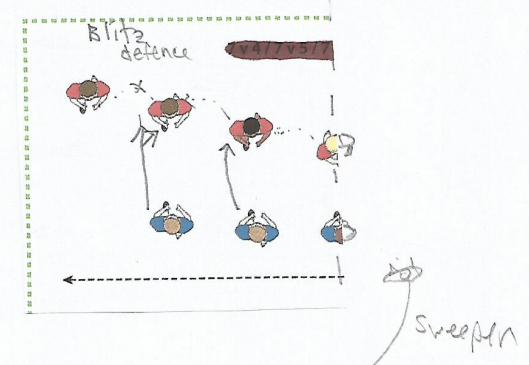 Blitz
defence
7 v 4 / 7 v 5 / 7
Sweeper